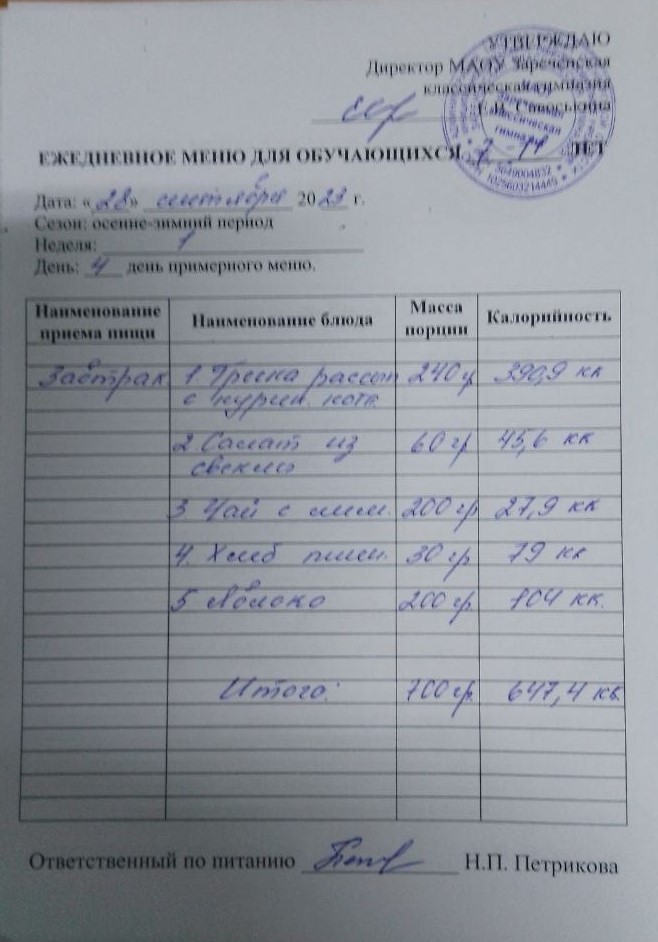 УТВЕРЖДАЮ
Директор МАОУ Зареченская
классическая гимназия
Зареченская
классическая
гимназия
5049004832
1025603214449
ЕЖЕДНЕВНОЕ МЕНЮ ДЛЯ ОБУЧАЮЩИХСЯ 7 - 11 ЛЕТ
Дата: «28» сентября 2023 г.
Сезон: осенне-зимний период
Неделя: 1
День: 4 день примерного меню.
Наименование приема пищи Наименование блюда Масса порции Калорийность
Завтрак 1. Гречка рассып 240 гр 390,9 кк
с курин. котл.
2. Салат из 60 гр 45,6 кк
свеклы
3 Чай с лим. 200 гр 27,9 кк
4. Хлеб пшен. 30 гр 79 кк
5 Яблоко 200 гр. 104 кк.
Итого: 700 гр. 647,4 кк
Ответственный по питанию Н.П. Петрикова